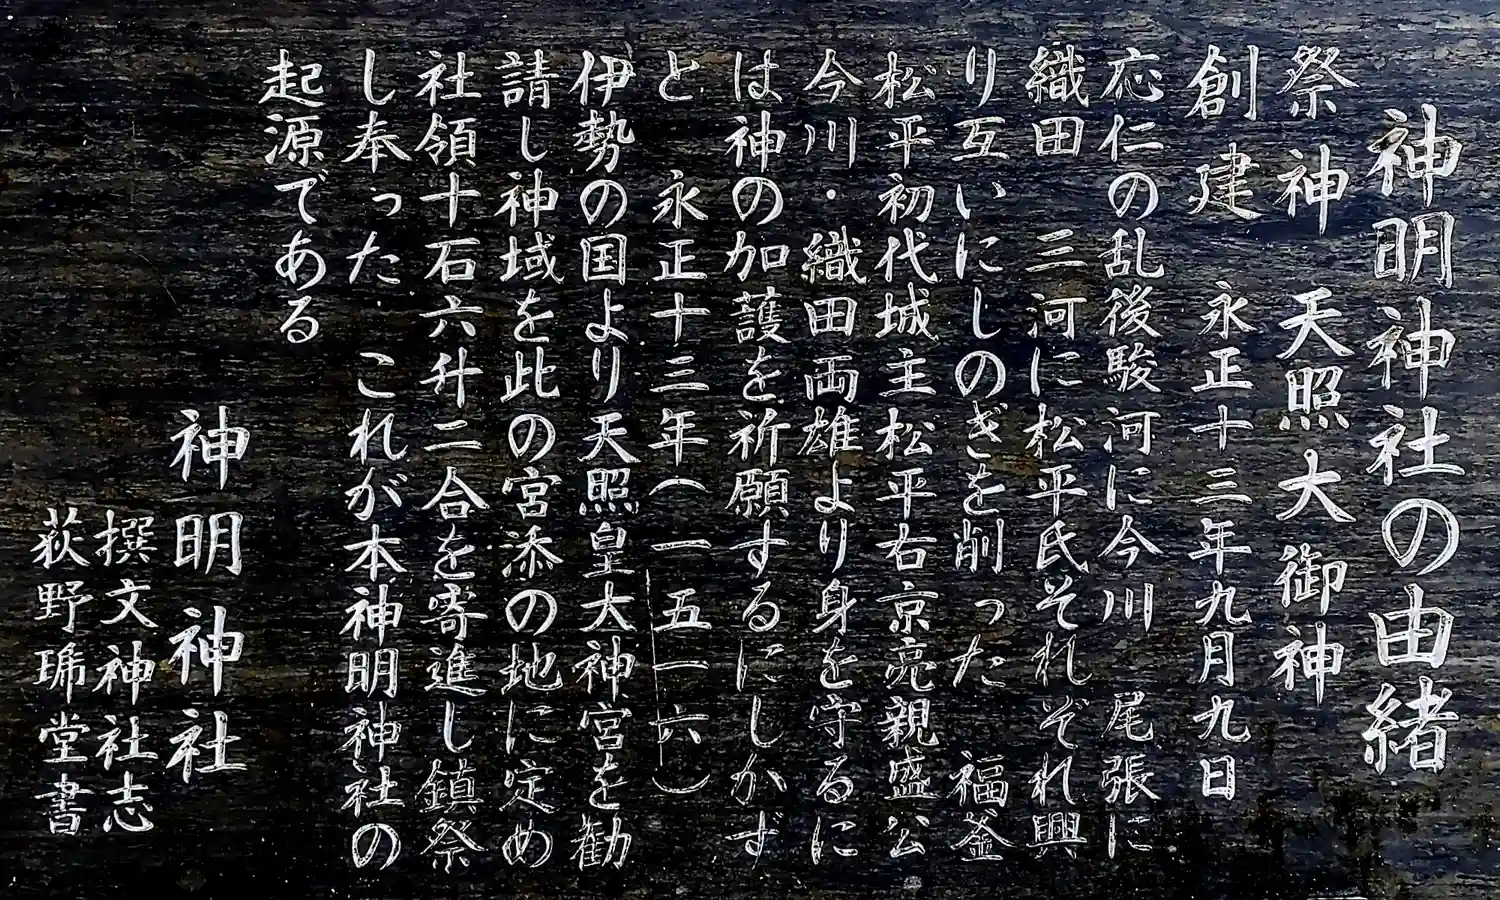 神明神社の由緒
祭神 天照大御神
創建 永正十三年九月九日
応仁の乱後駿河に今川 尾張に
織田 三河に松平氏それぞれ興
り互いにしのぎを削った 福釜
松平初代城主松平右京亮親盛公
今川・織田両雄より身を守るに
は神の加護を祈願するにしかず
と 永正十三年(一五一六)
伊勢の国より天照皇大神宮を勧
請し神域を此の宮添の地に定め
社領十石六升二合を寄進し鎮祭
し奉った これが本神明神社の
起源である
神明神社
撰文神社志
荻野 堂書